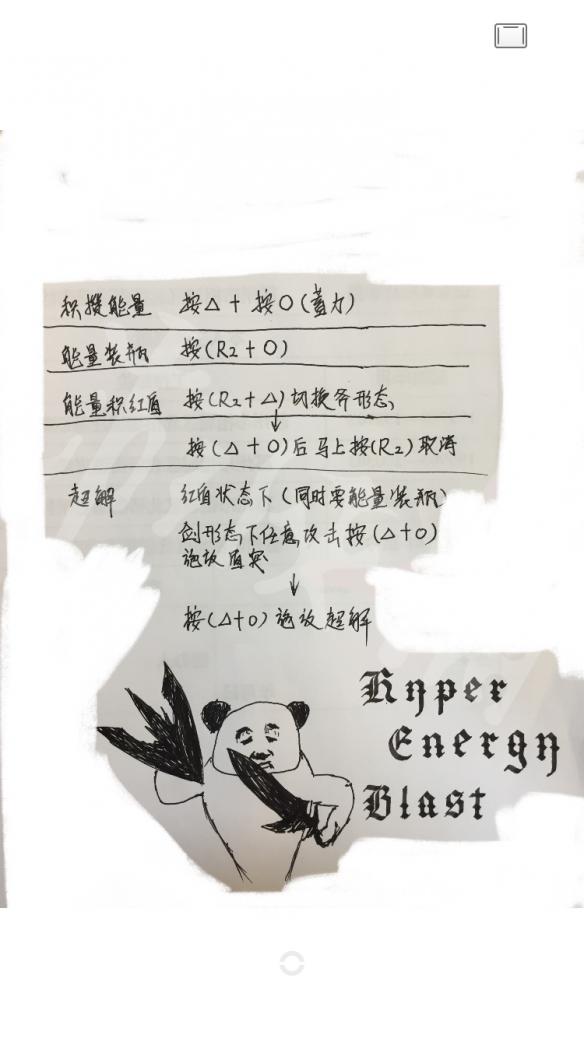 积攒能量 按△+按O(蓄力)
能量装瓶 按(R2+O)
能量积红盾 按(R2+△)切换斧形态
↓
按(△+O)后马上按(R2)取消
超解 红盾状态下(同时要能量装瓶)
剑形态下任意攻击按(△+O)
施放盾突
↓
按(△+O)施放超解
Hyper
Energy
Blast